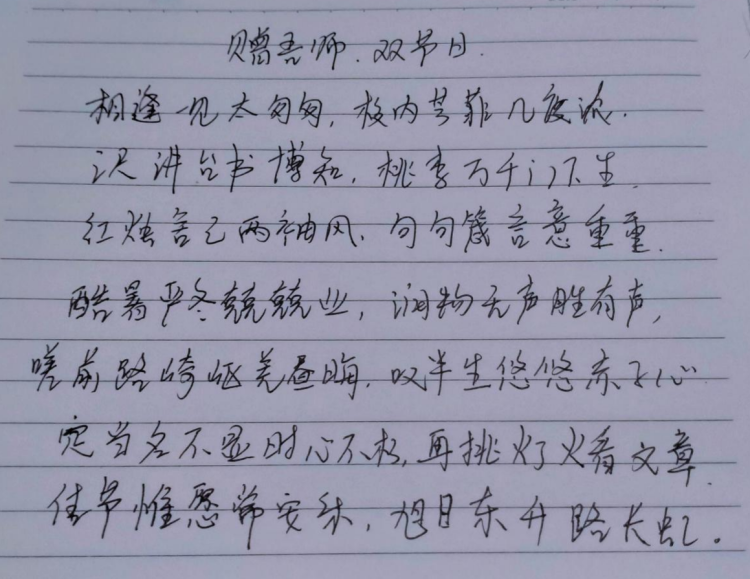 赠吾师.双节日.
相逢一见太匆匆，校内芳菲几度浓.
讲台书博知，桃李万千门下生.
红烛舍己两袖风.句句箴言意重重.
酷暑严冬兢兢业，润物无声胜有声，
嗟前路崎岖羌昼晦.叹半生悠悠赤子心
定当名不显时心不朽,再挑灯火看文章.
佳节惟愿常安乐，旭日东升路长虹。